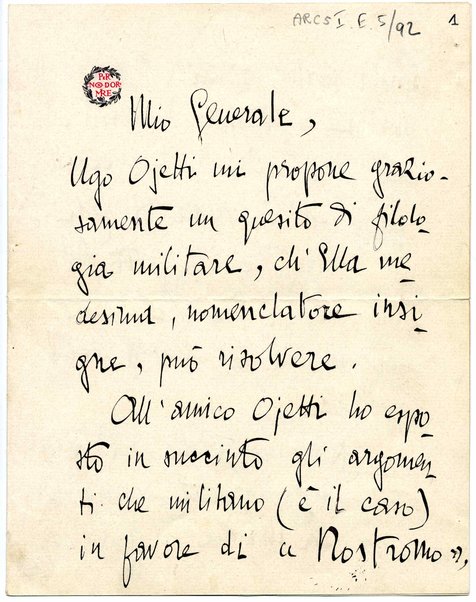 ARCS I. E. 5/92 1
PER
NON DOR
MIRE
Mio Generale,
Ugo Ojetti mi propone grazio-
samente un quesito di filolo-
gia militare, ch'Ella me-
desima, nomenclatore insi-
gne, può risolvere.
All'amico Ojetti ho espo-
sto in succinto gli argomen-
ti che militano (è il caso)
in favore di « Nostromo »,